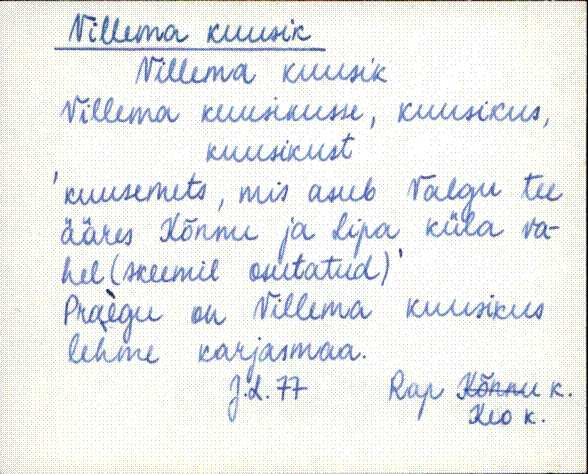 Villema kuusik
Villema kuusik
Villema kuusikusse, kuusikus,
kuusikust
'kuusemets, mis asub Valgu tee
ääres Kõnnu ja Lipa küla va-
hel (skeemil osutatud)'
Praegu on Villema kuusikus
lehme karjasmaa.
J.L. 77 Rap Kõnnu k.
Keo k.